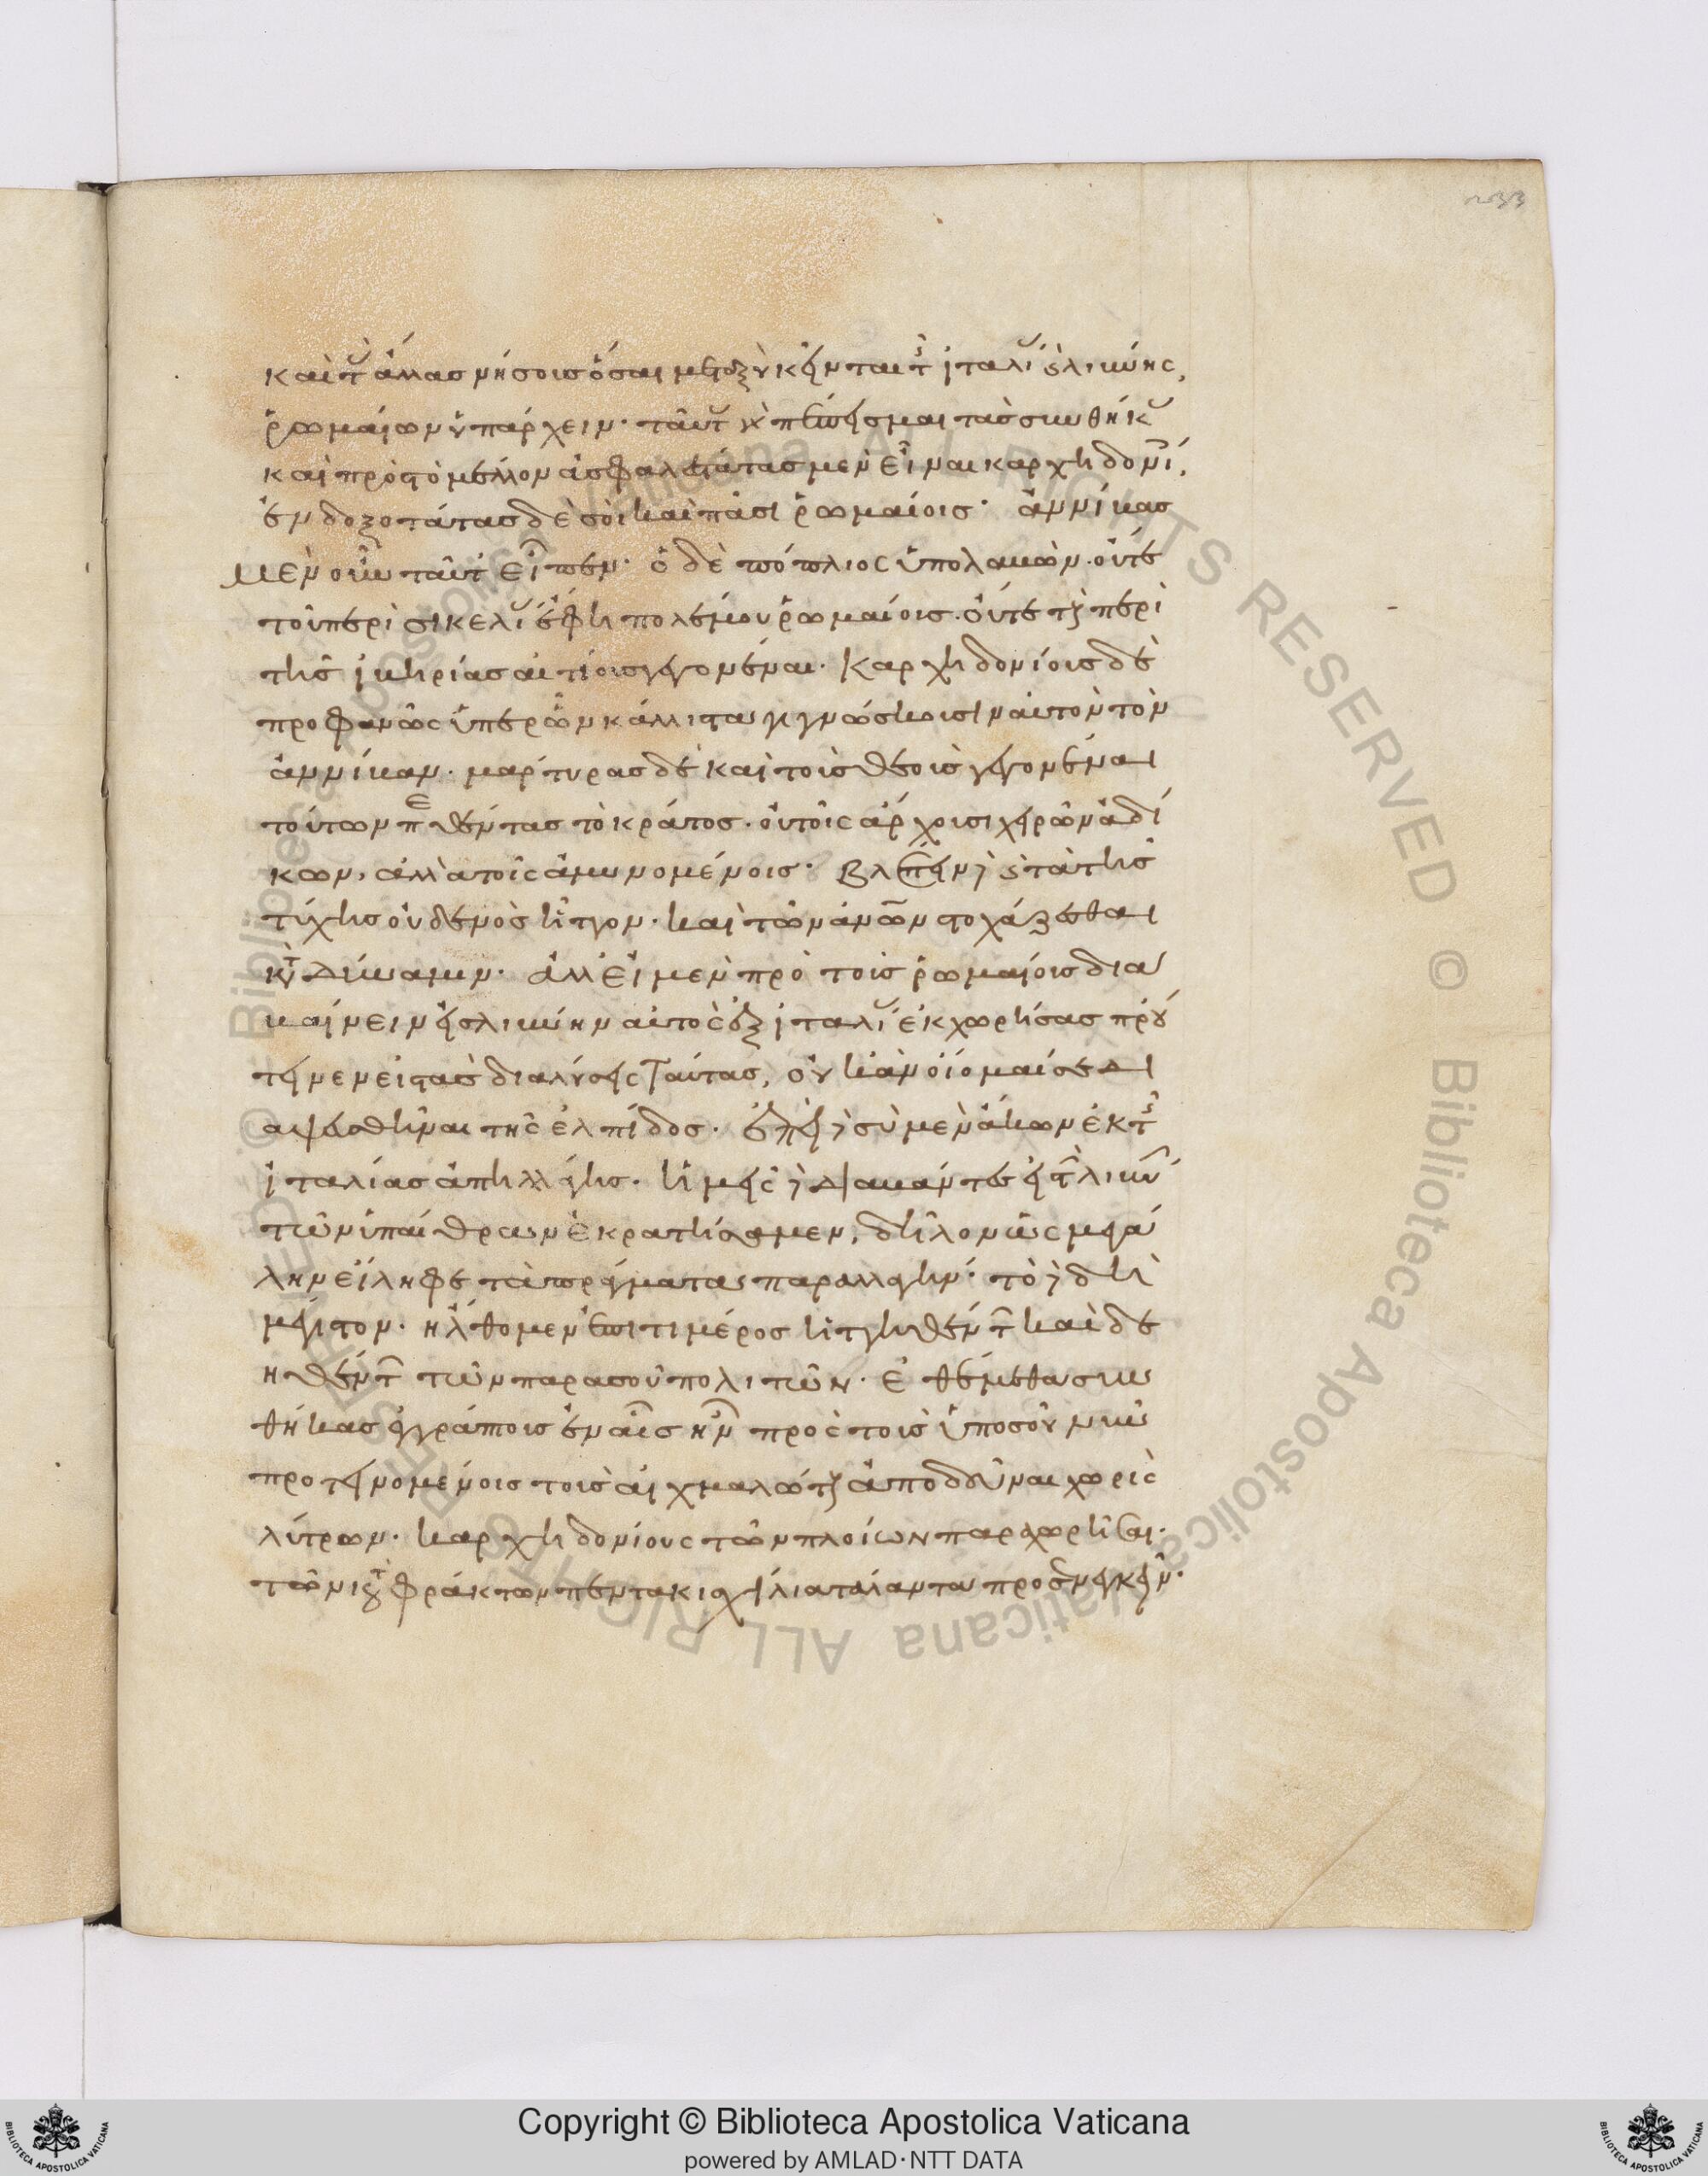 καὶ τὰς ἄλλας νήσους ὅσαι μεταξὺ κεῖνται τῆς ἰταλίας κ λιβύης,
ῥωμαίων ὑπάρχειν· ταύτας γὰρ πέπεισμαι τὰς συνθήκας
καὶ πρὸς τὸ μέλλον ἀσφαλεστάτας μὲν εἶναι καρχηδονίοις,
ἐνδοξοτάτας δὲ σοὶ καὶ πᾶσι ῥωμαίοις· ἀννίβας
μὲν οὖν ταῦτ εἶπεν· ὁ δὲ πόπλιος ὑπολαβὼν· οὔτε
τοῦ περὶ σικελίας ἔφη πολέμου ῥωμαίους· οὔτε τοῦ περὶ
τῆς ἰβηρίας αἰτίους γεγονέναι· καρχηδονίους δὲ
προφανῶς ὑπὲρ ὧν κάλλιστα γιγνώσκειν αὐτὸν τὸν
ἀννίβαν· μάρτυρας δὲ καὶ τοὺς θεοὺς γεγονέναι
τούτων περιθέντας τὸ κράτος· οὐ τοῖς ἄρχουσι χειρῶν ἀδί
κων, ἀλλὰ τοῖς ἀμυνομένοις· βλέπειν δὲ κ τὰ τῆς
τύχης οὐδενὸς ἧττον· καὶ τῶν ἀνων στοχάζεσθαι
κατὰ δύναμιν· ἀλλ εἰ μὲν πρὸ τοῦ τοὺς ῥωμαίους δια
βαίνειν εἰς λιβύην αὐτὸς ἐξ ἰταλίας ἐκχωρήσας πρού
τεινες τὰς διαλύσεις ταύτας, οὐκ ἂν οἴομαί σε δι
αψευσθῆναι τῆς ἐλπίδος· ἐπεὶ δὲ σὺ μὲν ἄκων ἐκ τῆς
ἰταλίας ἀπηλλάγης· ἡμεῖς δὲ διαβάντες εἰς τὴν λιβύην
τῶν ὑπαίθρων ἐκρατήσαμεν, δῆλον ὡς μεγά
λην εἴληφε τὰ πράγματα παραλλαγήν· τὸ δὲ δὴ
μέγιστον· ἤλθομεν ἐπὶ τι μέρος ἡττηθέντων καὶ δε
ηθέντων τῶν παρὰ σοῦ πολιτῶν· ἐθέμεθα συν
θήκας ἐγγράπτους ἐν αἷς ἦν πρὸς τοῖς ὑπὸ σοῦ νῦν
προτεινομένοις τοὺς αἰχμαλώτους ἀποδοῦναι χωρὶς
λύτρων· καρχηδονίους τῶν πλοίων παραχωρῆσαι·
τῶν καταφράκτων πεντακισχίλια τάλαντα προσενεγκεῖν·
Copyright © Biblioteca Apostolica Vaticana
powered by AMLAD·NTT DATA